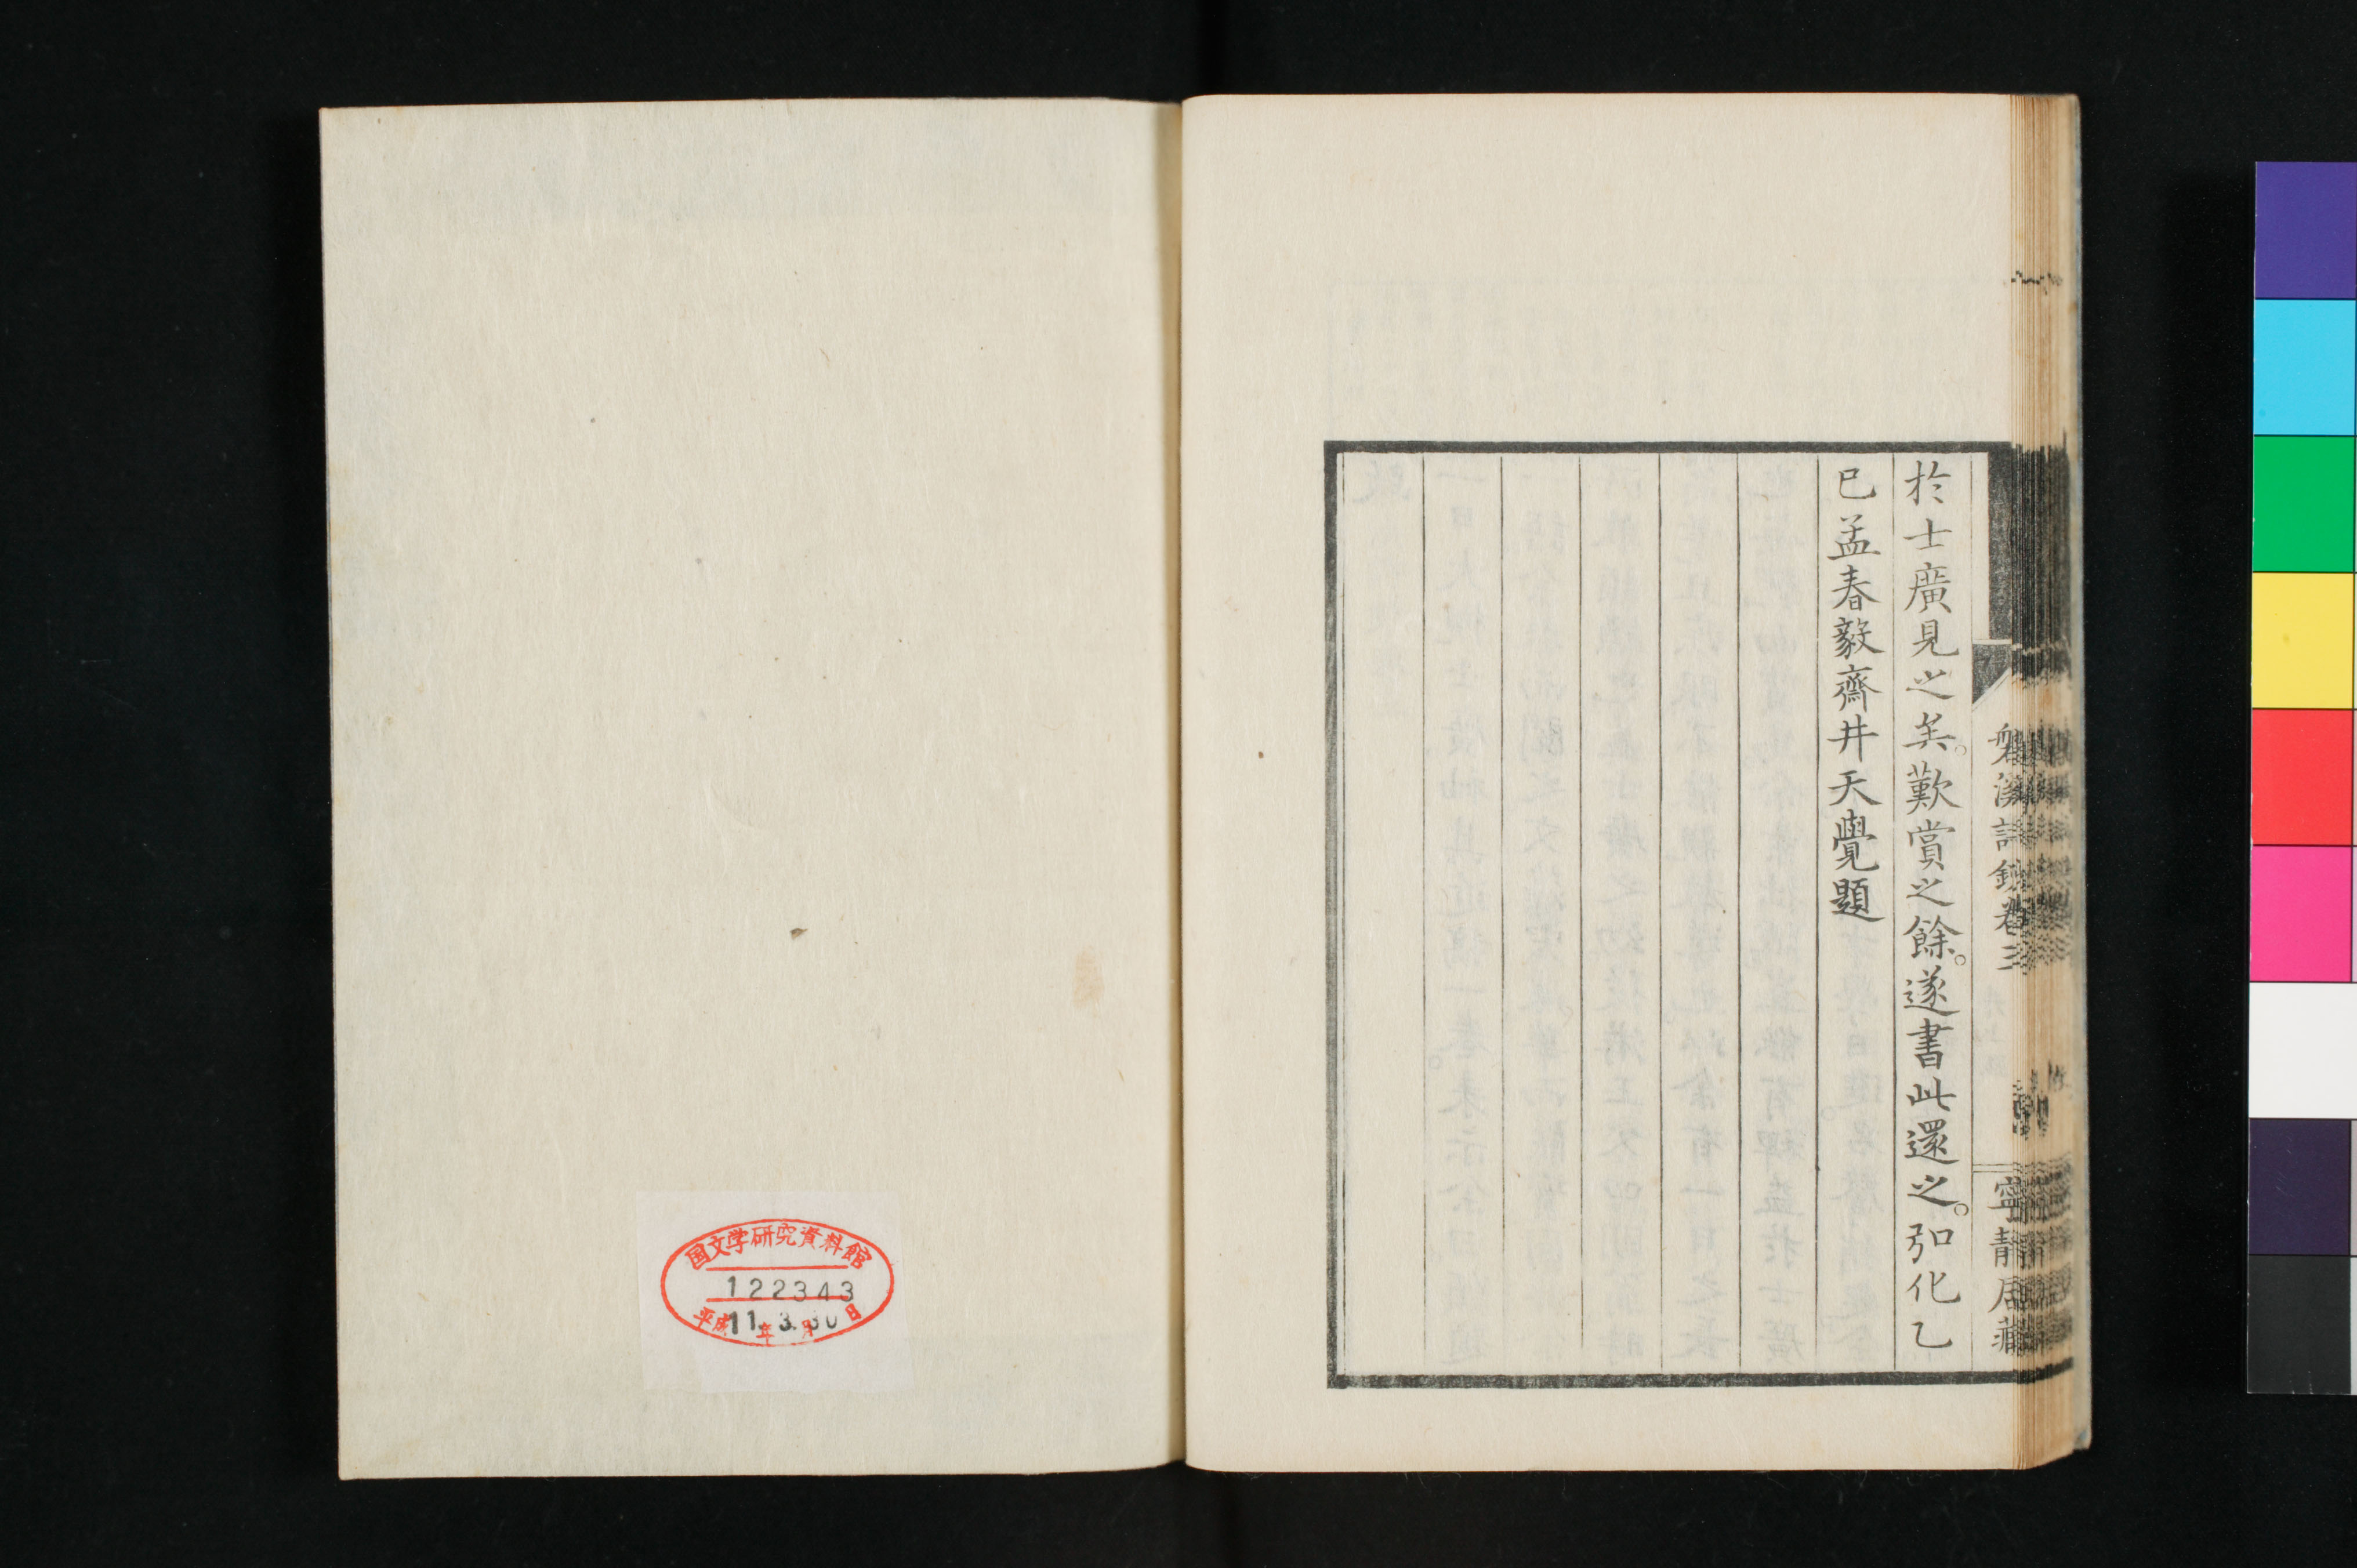 於士廣見之矣。歎賞之餘。遂書此還之。弘化乙
巳孟春毅齋井天覺題
磐溪詩鈔卷三
寧靜居藏
国文学研究資料館
122343
平成11年3月30日